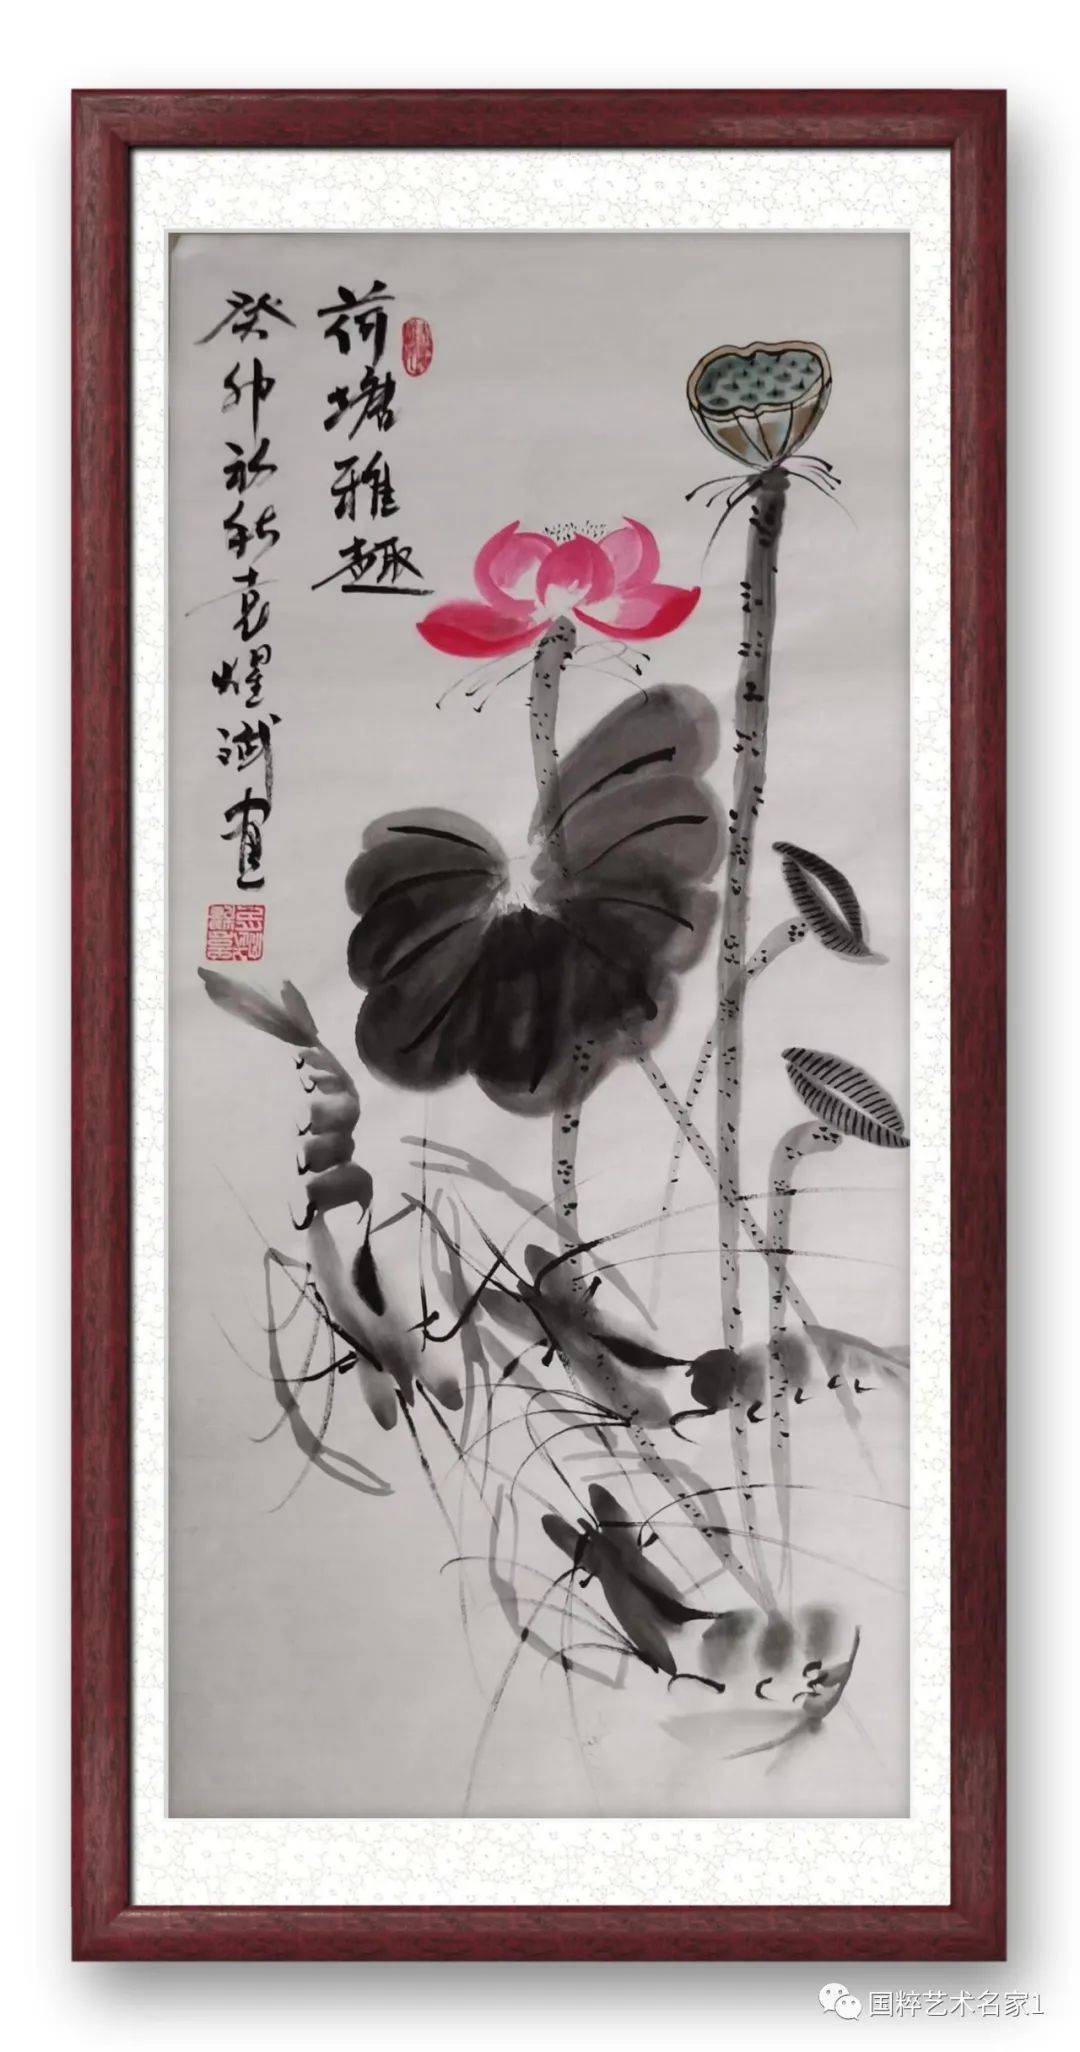 荷塘雅趣
癸卯初秋袁耀斌画
国粹艺术名家1